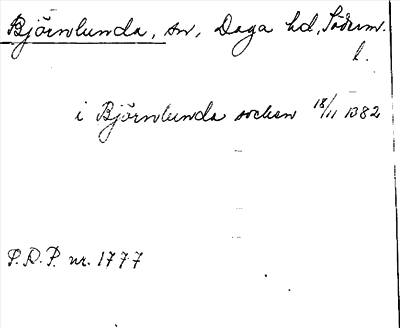 Björnlunda, sn, Daga hd, Söderm.
l.
i Björnlunda socken 18/11 1382
P.R.P. nr. 1777